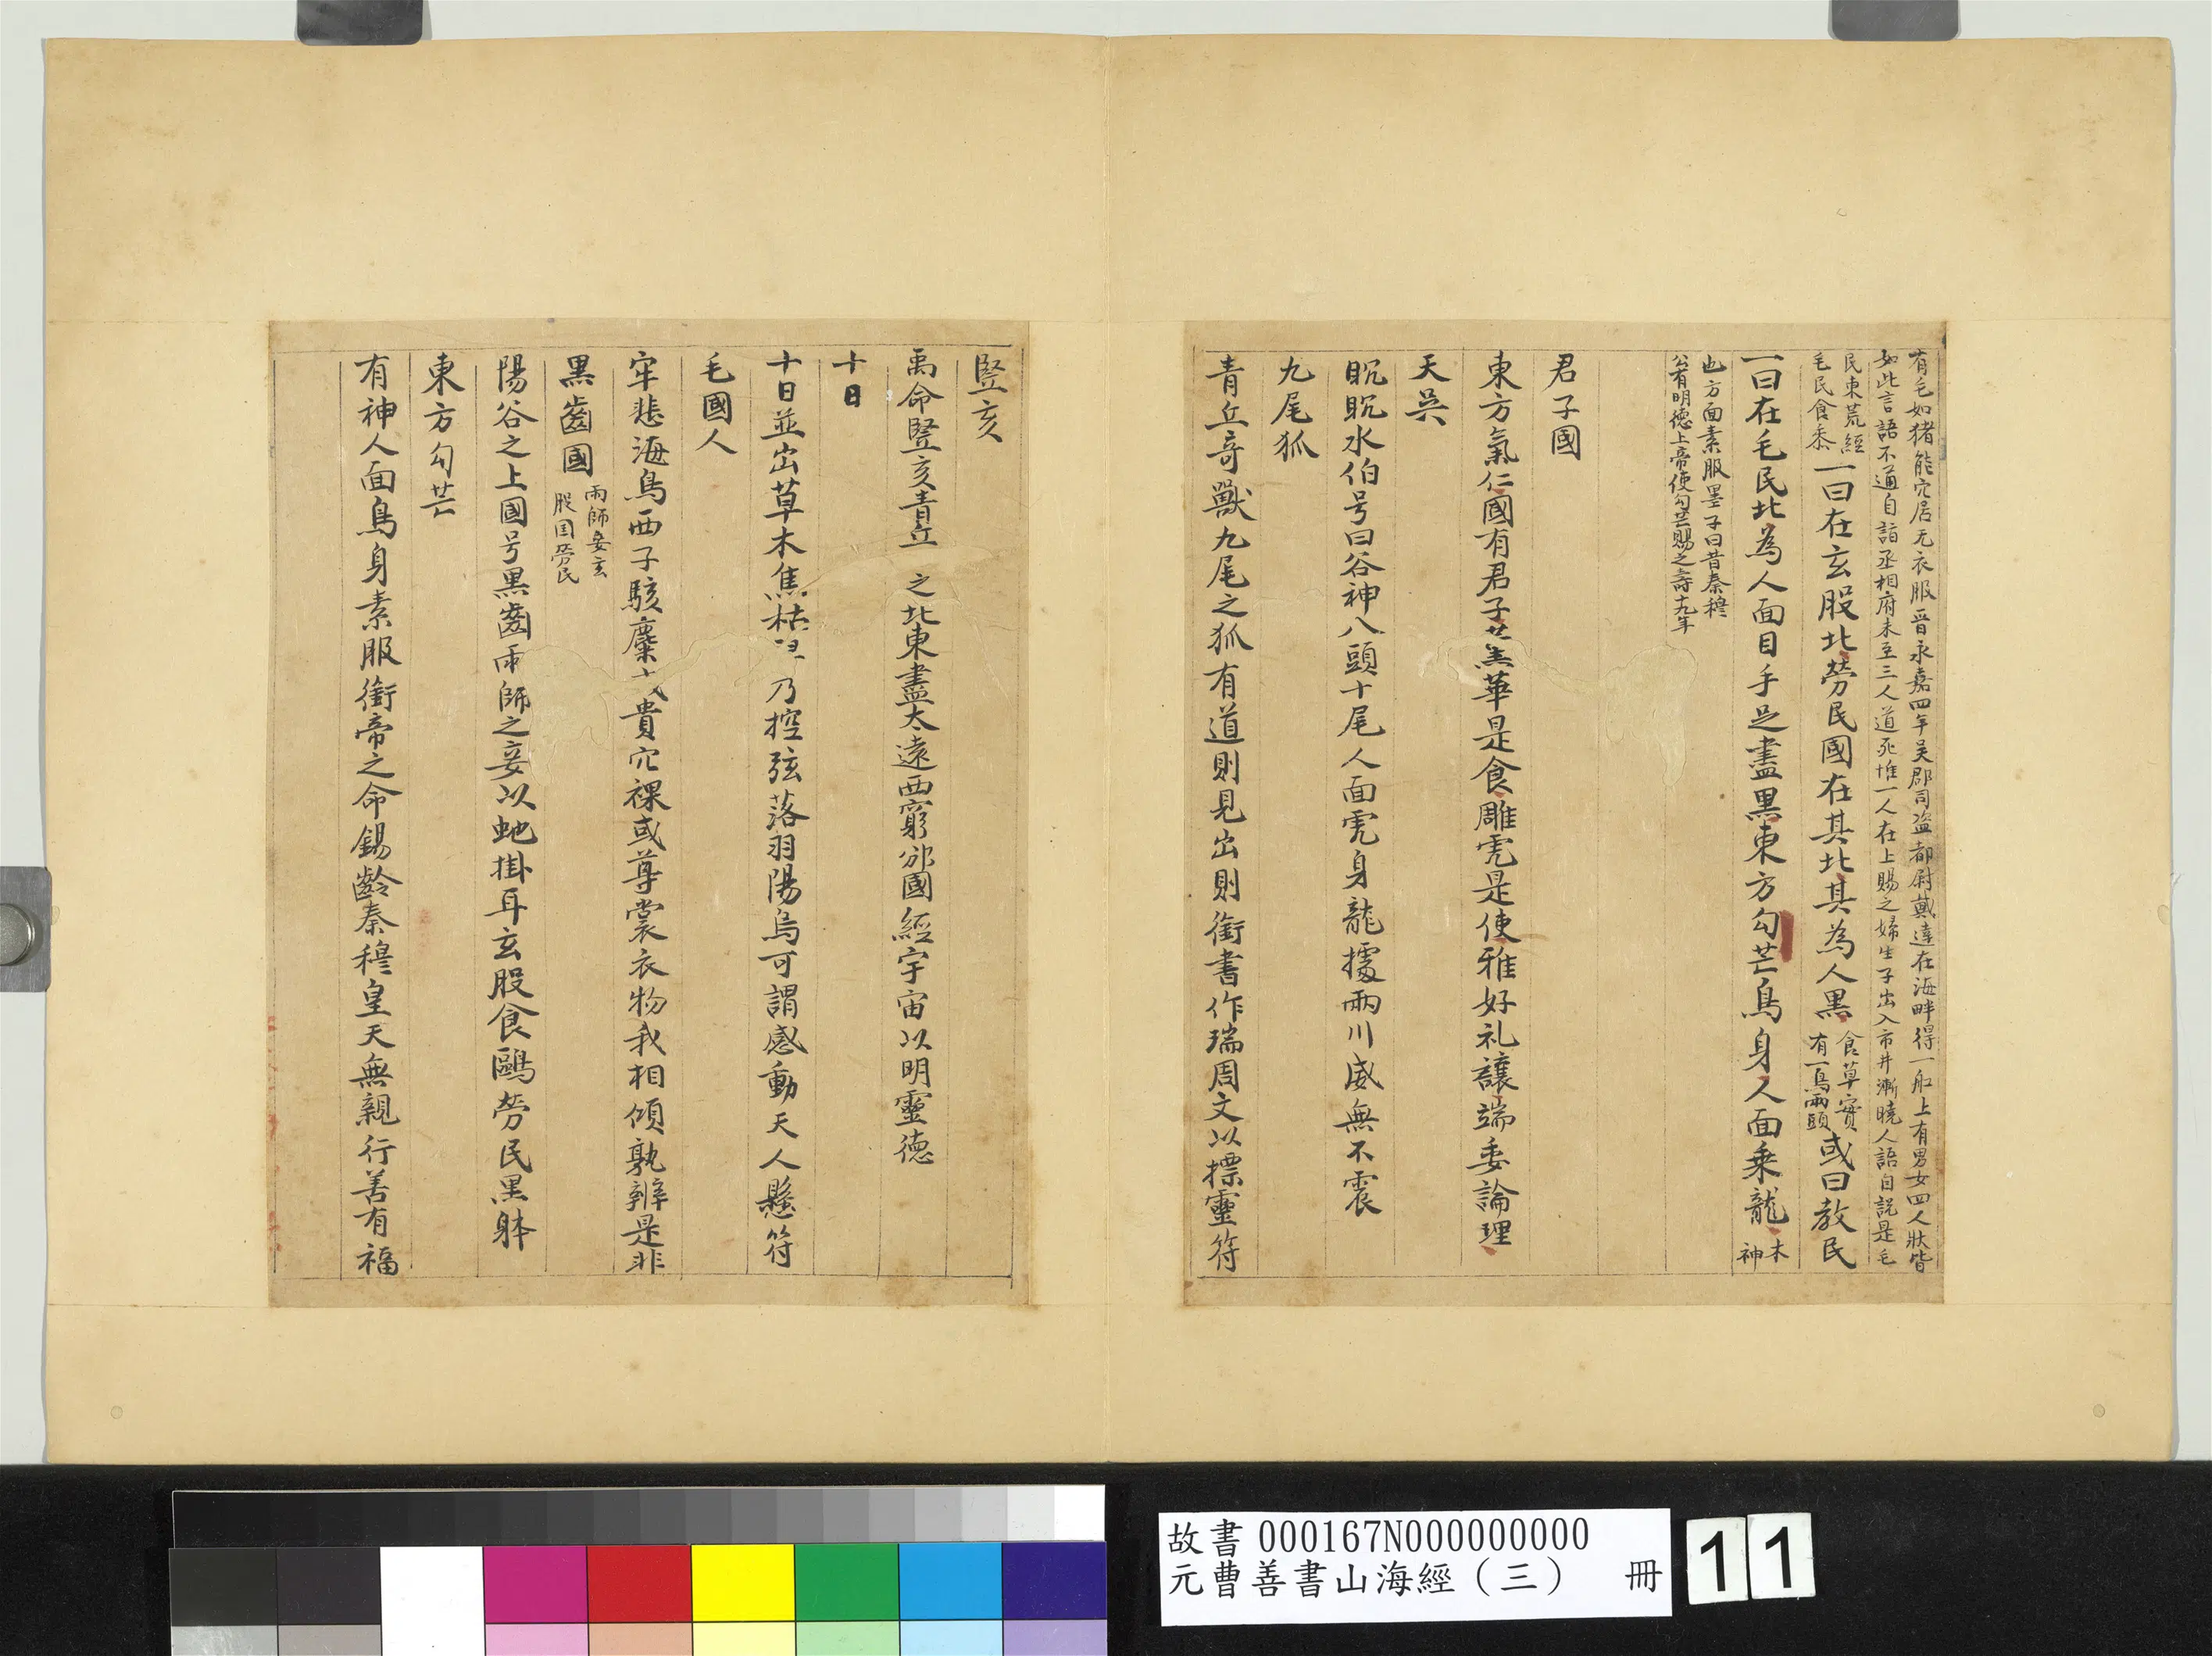 有毛如猪能穴居无衣服晋永嘉四年吴郡司盗都尉戴逢在海畔得一舡上有男女四人狀皆
如此言語不通自詣丞相府未至三人道死惟一人在上賜之婦生子出入市井漸曉人語自說是毛
民東荒經
毛民食黍
一曰在玄股北勞民國在其北其為人黒
食草實
有一鳥兩頭
或曰教民
一曰在毛民北為人面目手足盡黒東方勾芒鳥身人面乗龍
木
神
也方面素服墨子曰昔秦穆
公有明德上帝使勾芒賜之壽十九年
君子國
東方氣仁國有君子薫華是食雕虎是使雅好礼讓端委論理
天吳
眖眖水伯号曰谷神八頭十尾人面虎身龍據兩川威無不震
九尾狐
青丘奇獸九尾之狐有道則見出則銜書作瑞周文以摽靈符
豎亥
禹命豎亥青丘之北東盡太遠西窮邠國經宇宙以明靈德
十日
十日並出草木焦枯乃控弦落羽陽烏可謂感動天人懸符
毛國人
牢悲海鳥西子駭麋或貴穴裸或尊裳衣物我相傾孰辨是非
黒齒國
雨師妾玄
股国勞民
陽谷之上國号黒齒雨師之妾以虵掛耳玄股食鷗勞民黒躰
東方勾芒
有神人面鳥身素服銜帝之命錫齡秦穆皇天無親行善有福
故書 000167N000000000
元曹善書山海經（三） 冊
11